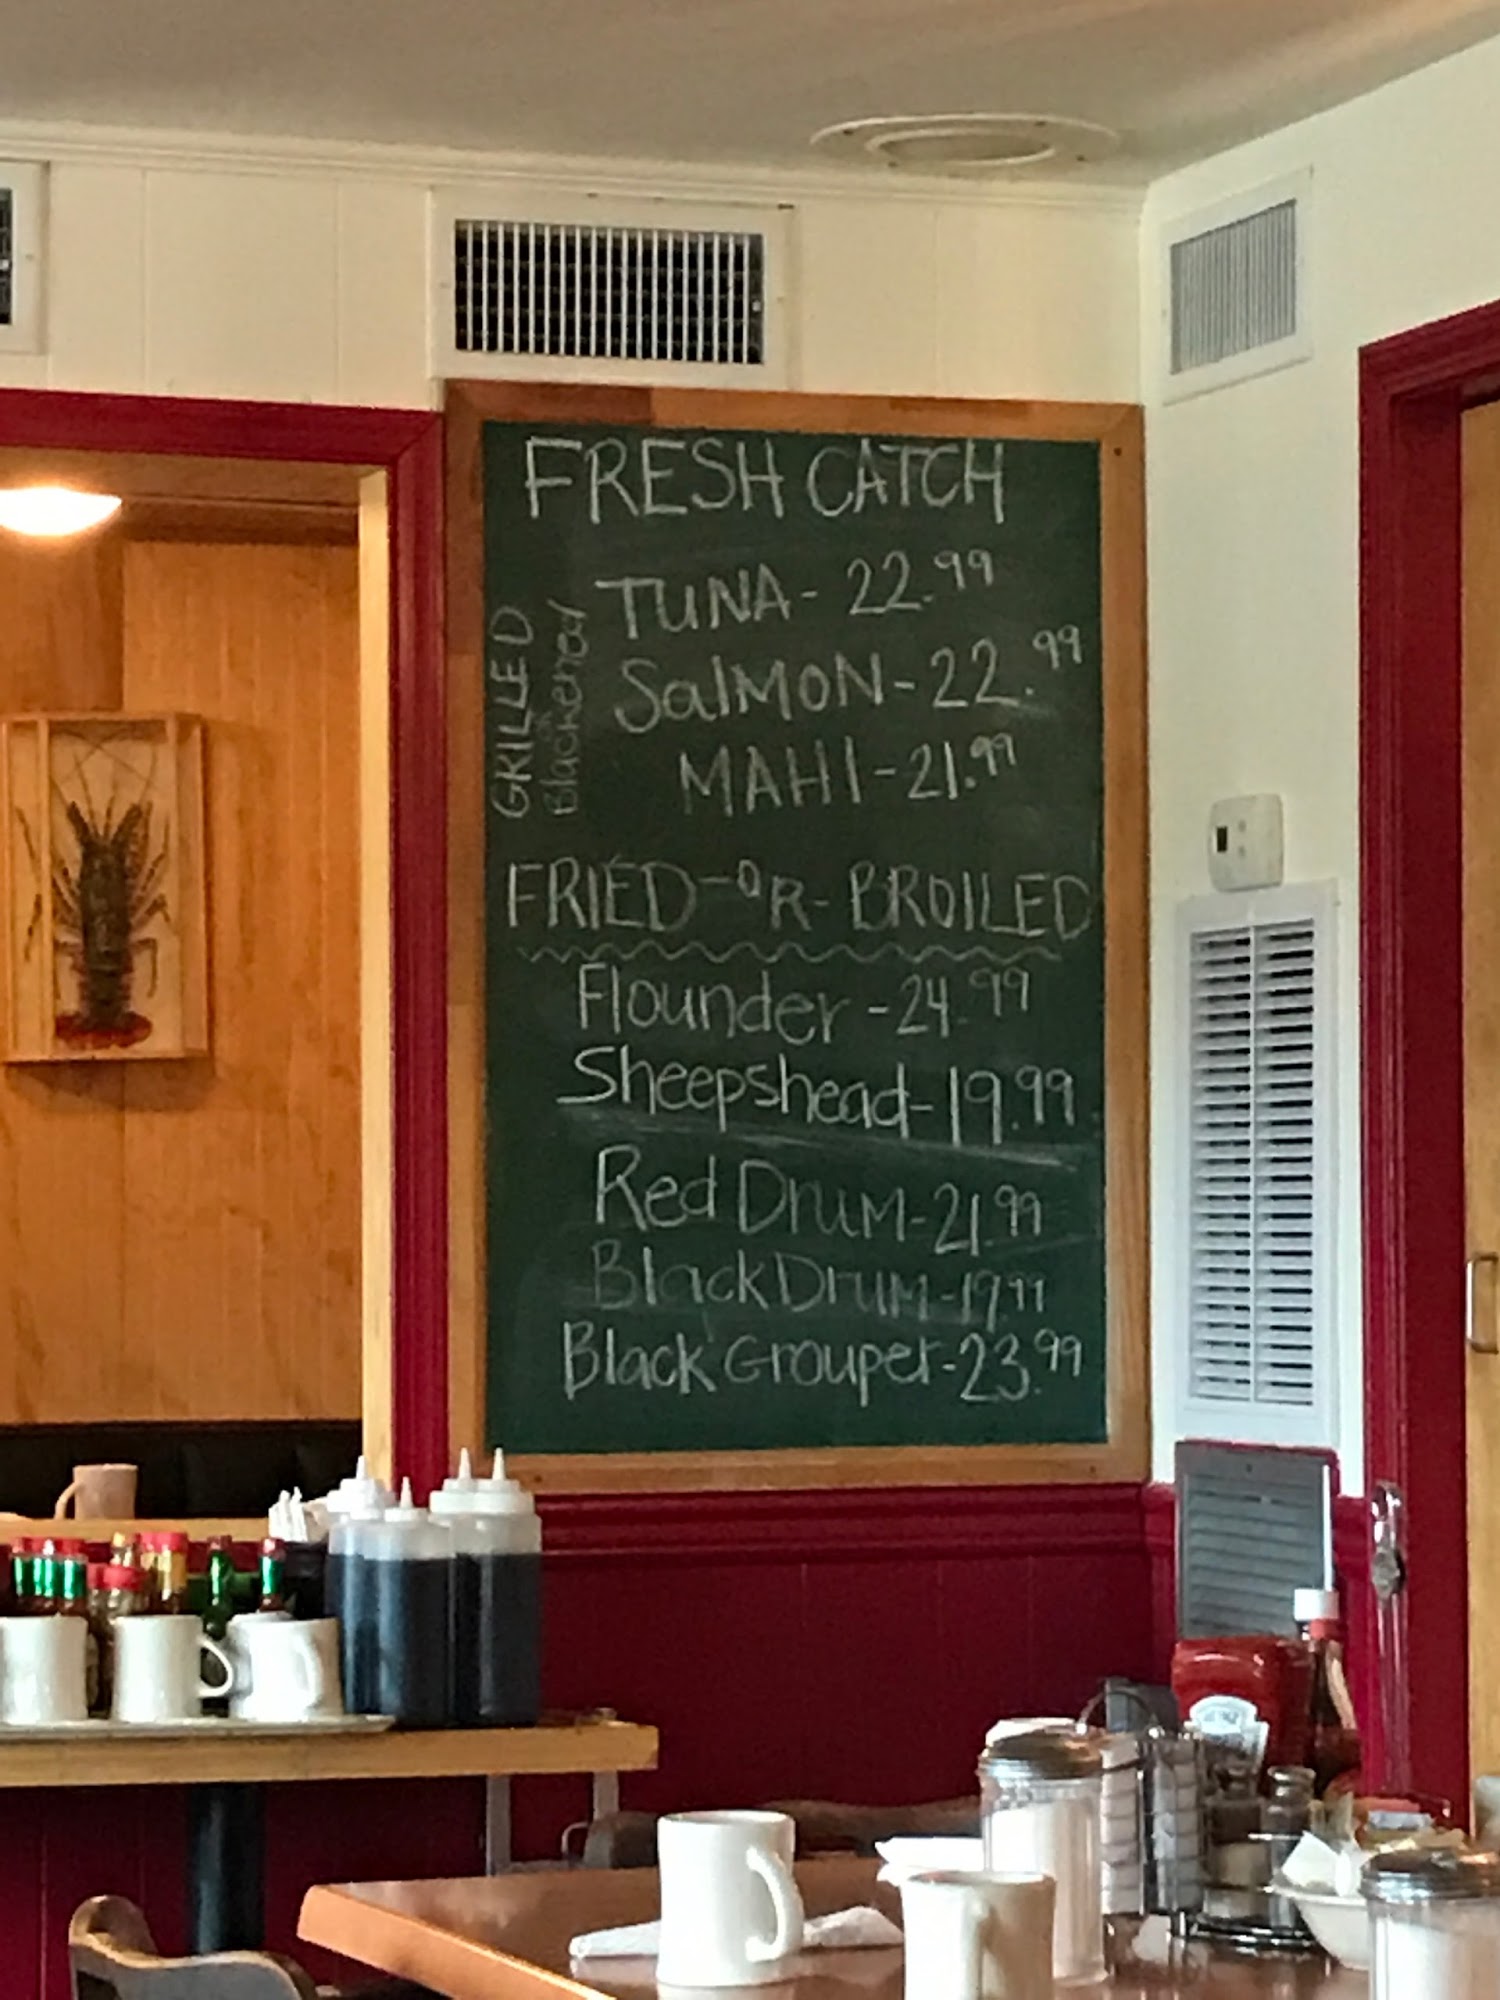 FRESH CATCH
GRILLED
or
Blackened
TUNA - 22.99
SalMON - 22.99
MAHI - 21.99
FRIED - OR - BROILED
Flounder - 24.99
Sheepshead - 19.99
Red DruM - 21.99
Black DruM - 19.99
Black Grouper - 23.99
HEINZ